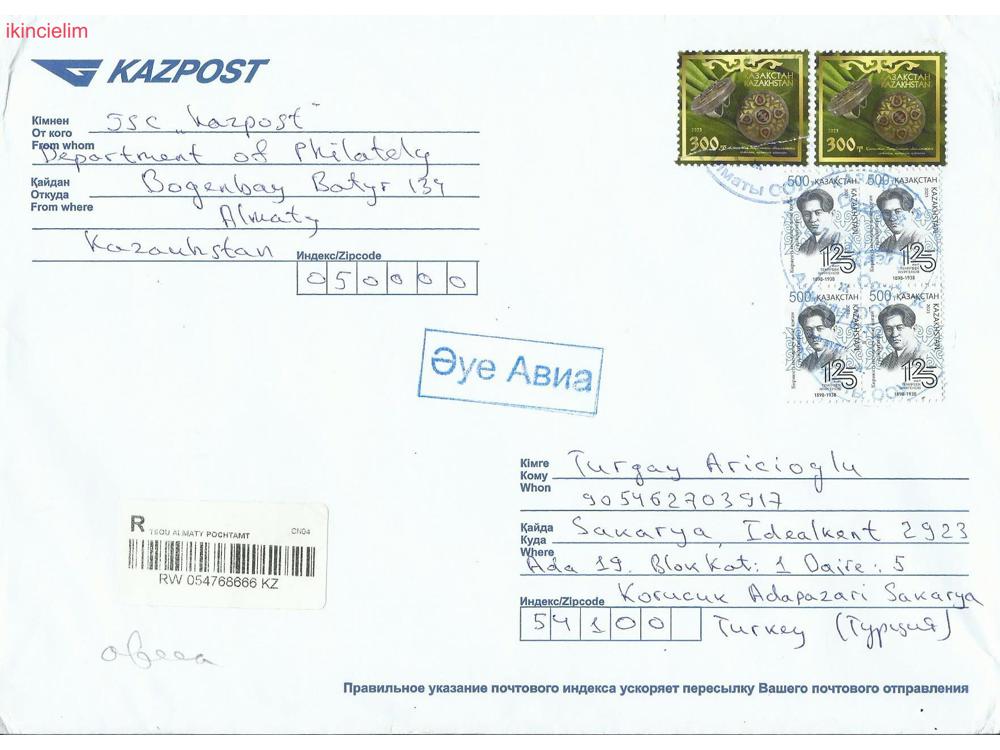 ikincielim
KAZPOST
Кімнен
От кого
From whom
JSC "Kazpost"
Department of Philately
Қайдан
Откуда
From where
Bogenbay Batyr 134
Almaty
Kazakhstan
Индекс/Zipcode
050000
ҚАЗАҚСТАН
KAZAKHSTAN
2023
300 тг
ҚАЗАҚСТАН
KAZAKHSTAN
2023
300 тг
500 ҚАЗАҚСТАН
KAZAKHSTAN
125
1898-1938
500 ҚАЗАҚСТАН
KAZAKHSTAN
125
1898-1938
500 ҚАЗАҚСТАН
KAZAKHSTAN
125
1898-1938
500 ҚАЗАҚСТАН
KAZAKHSTAN
125
1898-1938
Әуе Авиа
Кімге
Кому
Whon
Turgay Aricioglu
905462703917
Қайда
Куда
Where
Sakarya Idealkent 2923
Ada 19. Blok Kat: 1 Daire: 5
Korucuk Adapazari Sakarya
Индекс/Zipcode
54100
Turkey (Турция)
R
ALMATY POCHTAMT
CN04
RW 054768666 KZ
Правильное указание почтового индекса ускоряет пересылку Вашего почтового отправления